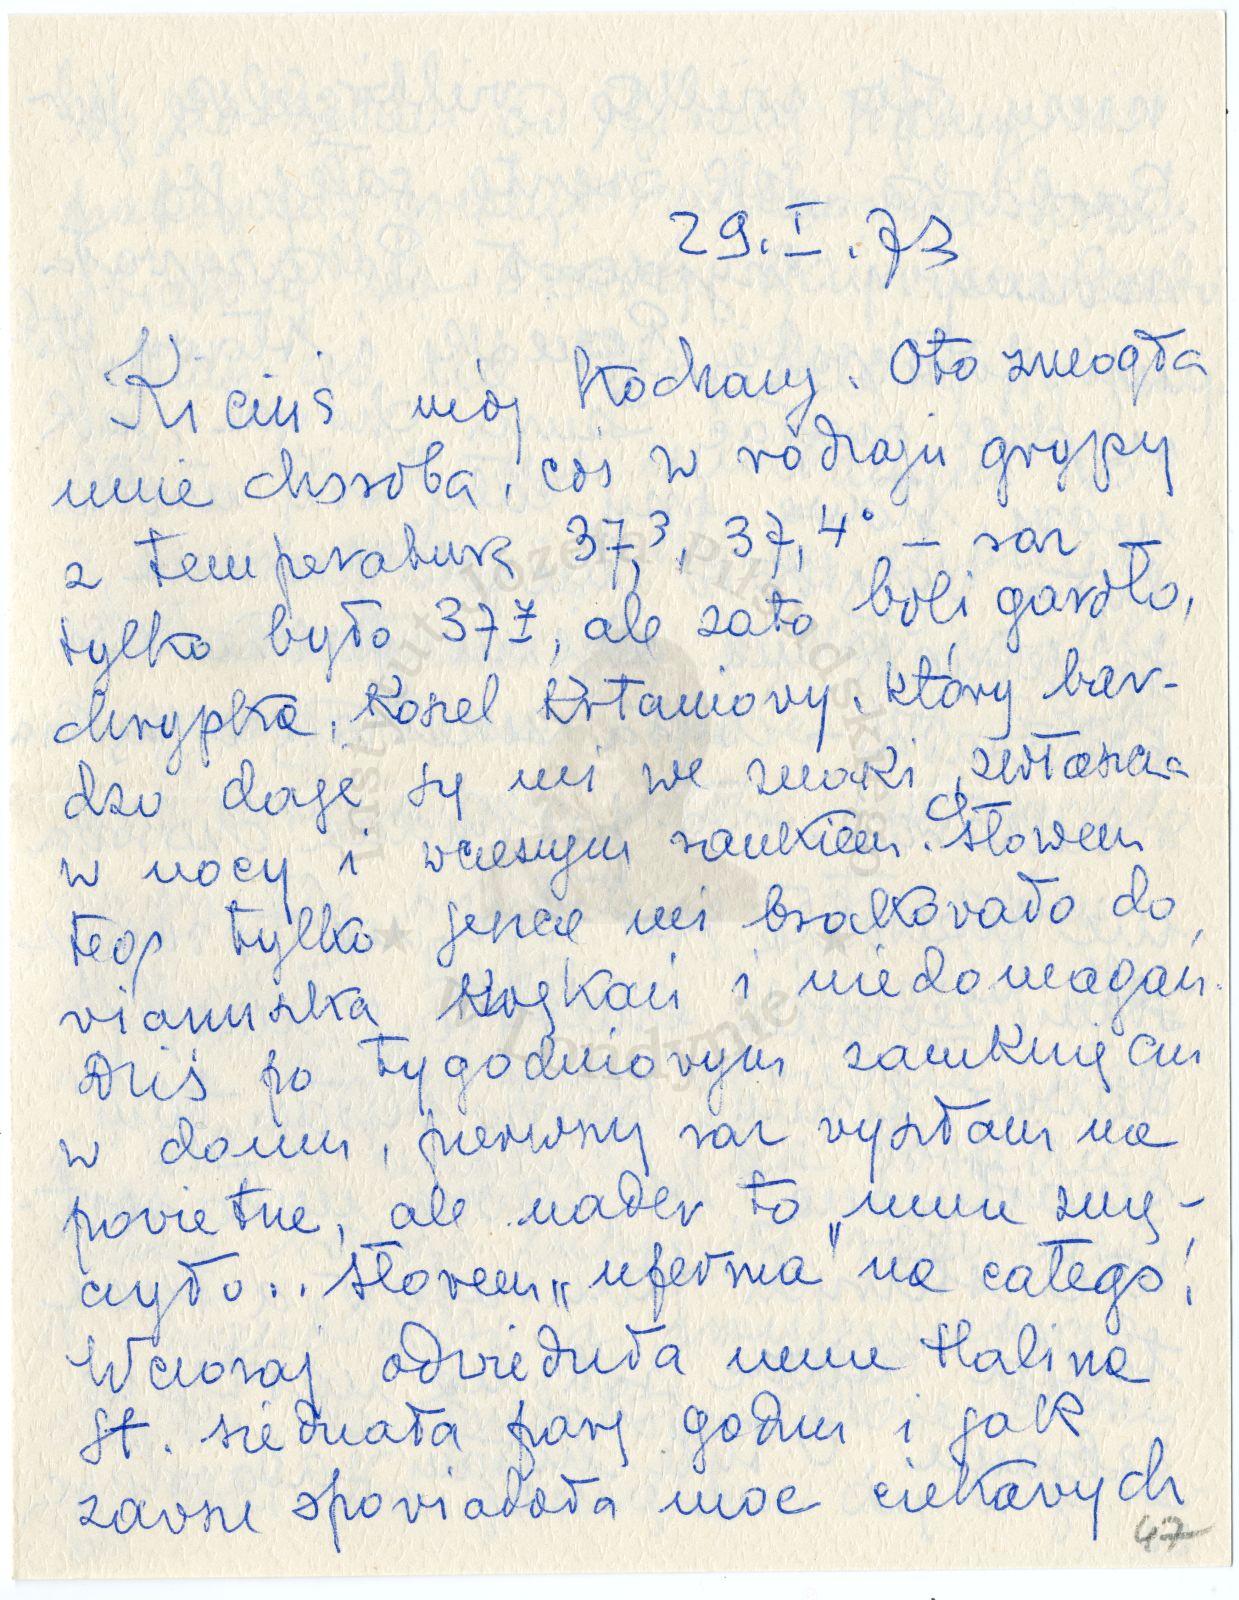 29.I.73
Kiciuś mój kochany. Oto zmogła
mnie choroba, coś w rodzaju grypy
z temperaturą 37,3, 37,4° – raz –
tylko było 37 7, ale zato boli gardło,
chrypka, kaszel krtaniowy, który bar-
dzo daje się mi we znaki, zwłaszcza
w nocy i wczesnym rankiem. Słowem
tego tylko jeszcze mi brakowało do
wianuszka niedomagań.
Dziś po tygodniowym zamknięciu
w domu, pierwszy raz wyszłam na
powietrze, ale nader to mnie zmę-
czyło.. Słowem na całego!
Wczoraj odwiedziła mnie Halina
St. siedziała parę godzin i jak
zawsze opowiadała moc ciekawych
47
Instytut Józefa Piłsudskiego
w Londynie